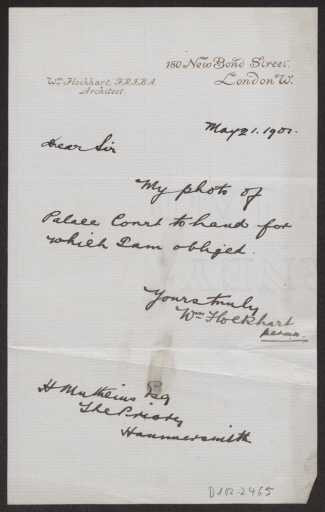 180 New Bond Street.
London W.
Wm Flockhart, F.R.I.B.A.
Architect.
May 21. 1901.
Dear Sir
My photo of
Palace Court to hand for
which I am obliged.
Yours truly
Wm Flockhart
H Mathews Esq
The Priory
Hammersmith
D102-2465